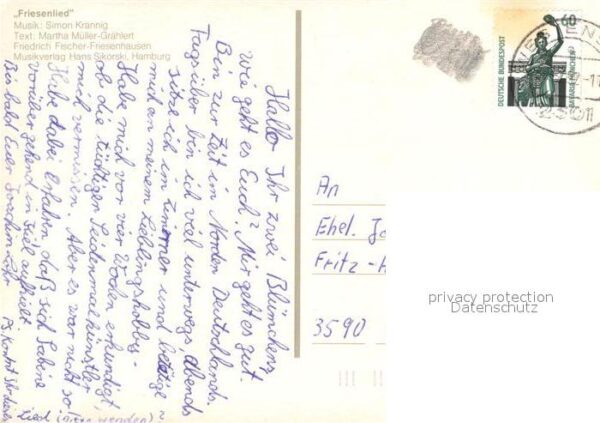 „Friesenlied"
Musik: Simon Krannig
Text: Martha Müller-Grählert
Friedrich Fischer-Friesenhausen
Musikverlag Hans Sikorski, Hamburg
Hallo Ihr zwei Blümchens,
wie geht es Euch? Mir geht es gut.
Bin zur Zeit im Norden Deutschlands.
Tagsüber bin ich viel unterwegs abends
sitze ich im Zimmer und
mich an meinem Lieblingshobby.
Habe mich vor vier Wochen erkundigt,
ob die tüchtigen Seidenmalkünstler
mich vermissen. Aber es war nicht so
Habe dabei erfahren, daß sich Sabine
vorübergehend in Kiel aufhielt.
Bis bald Euer Joachim
PS. Kennt Ihr dieses
Lied (wenden)?
60
DEUTSCHE BUNDESPOST
BAVARIA MÜNCHEN
An
Ehel.
Fritz-
3590
privacy protection
Datenschutz